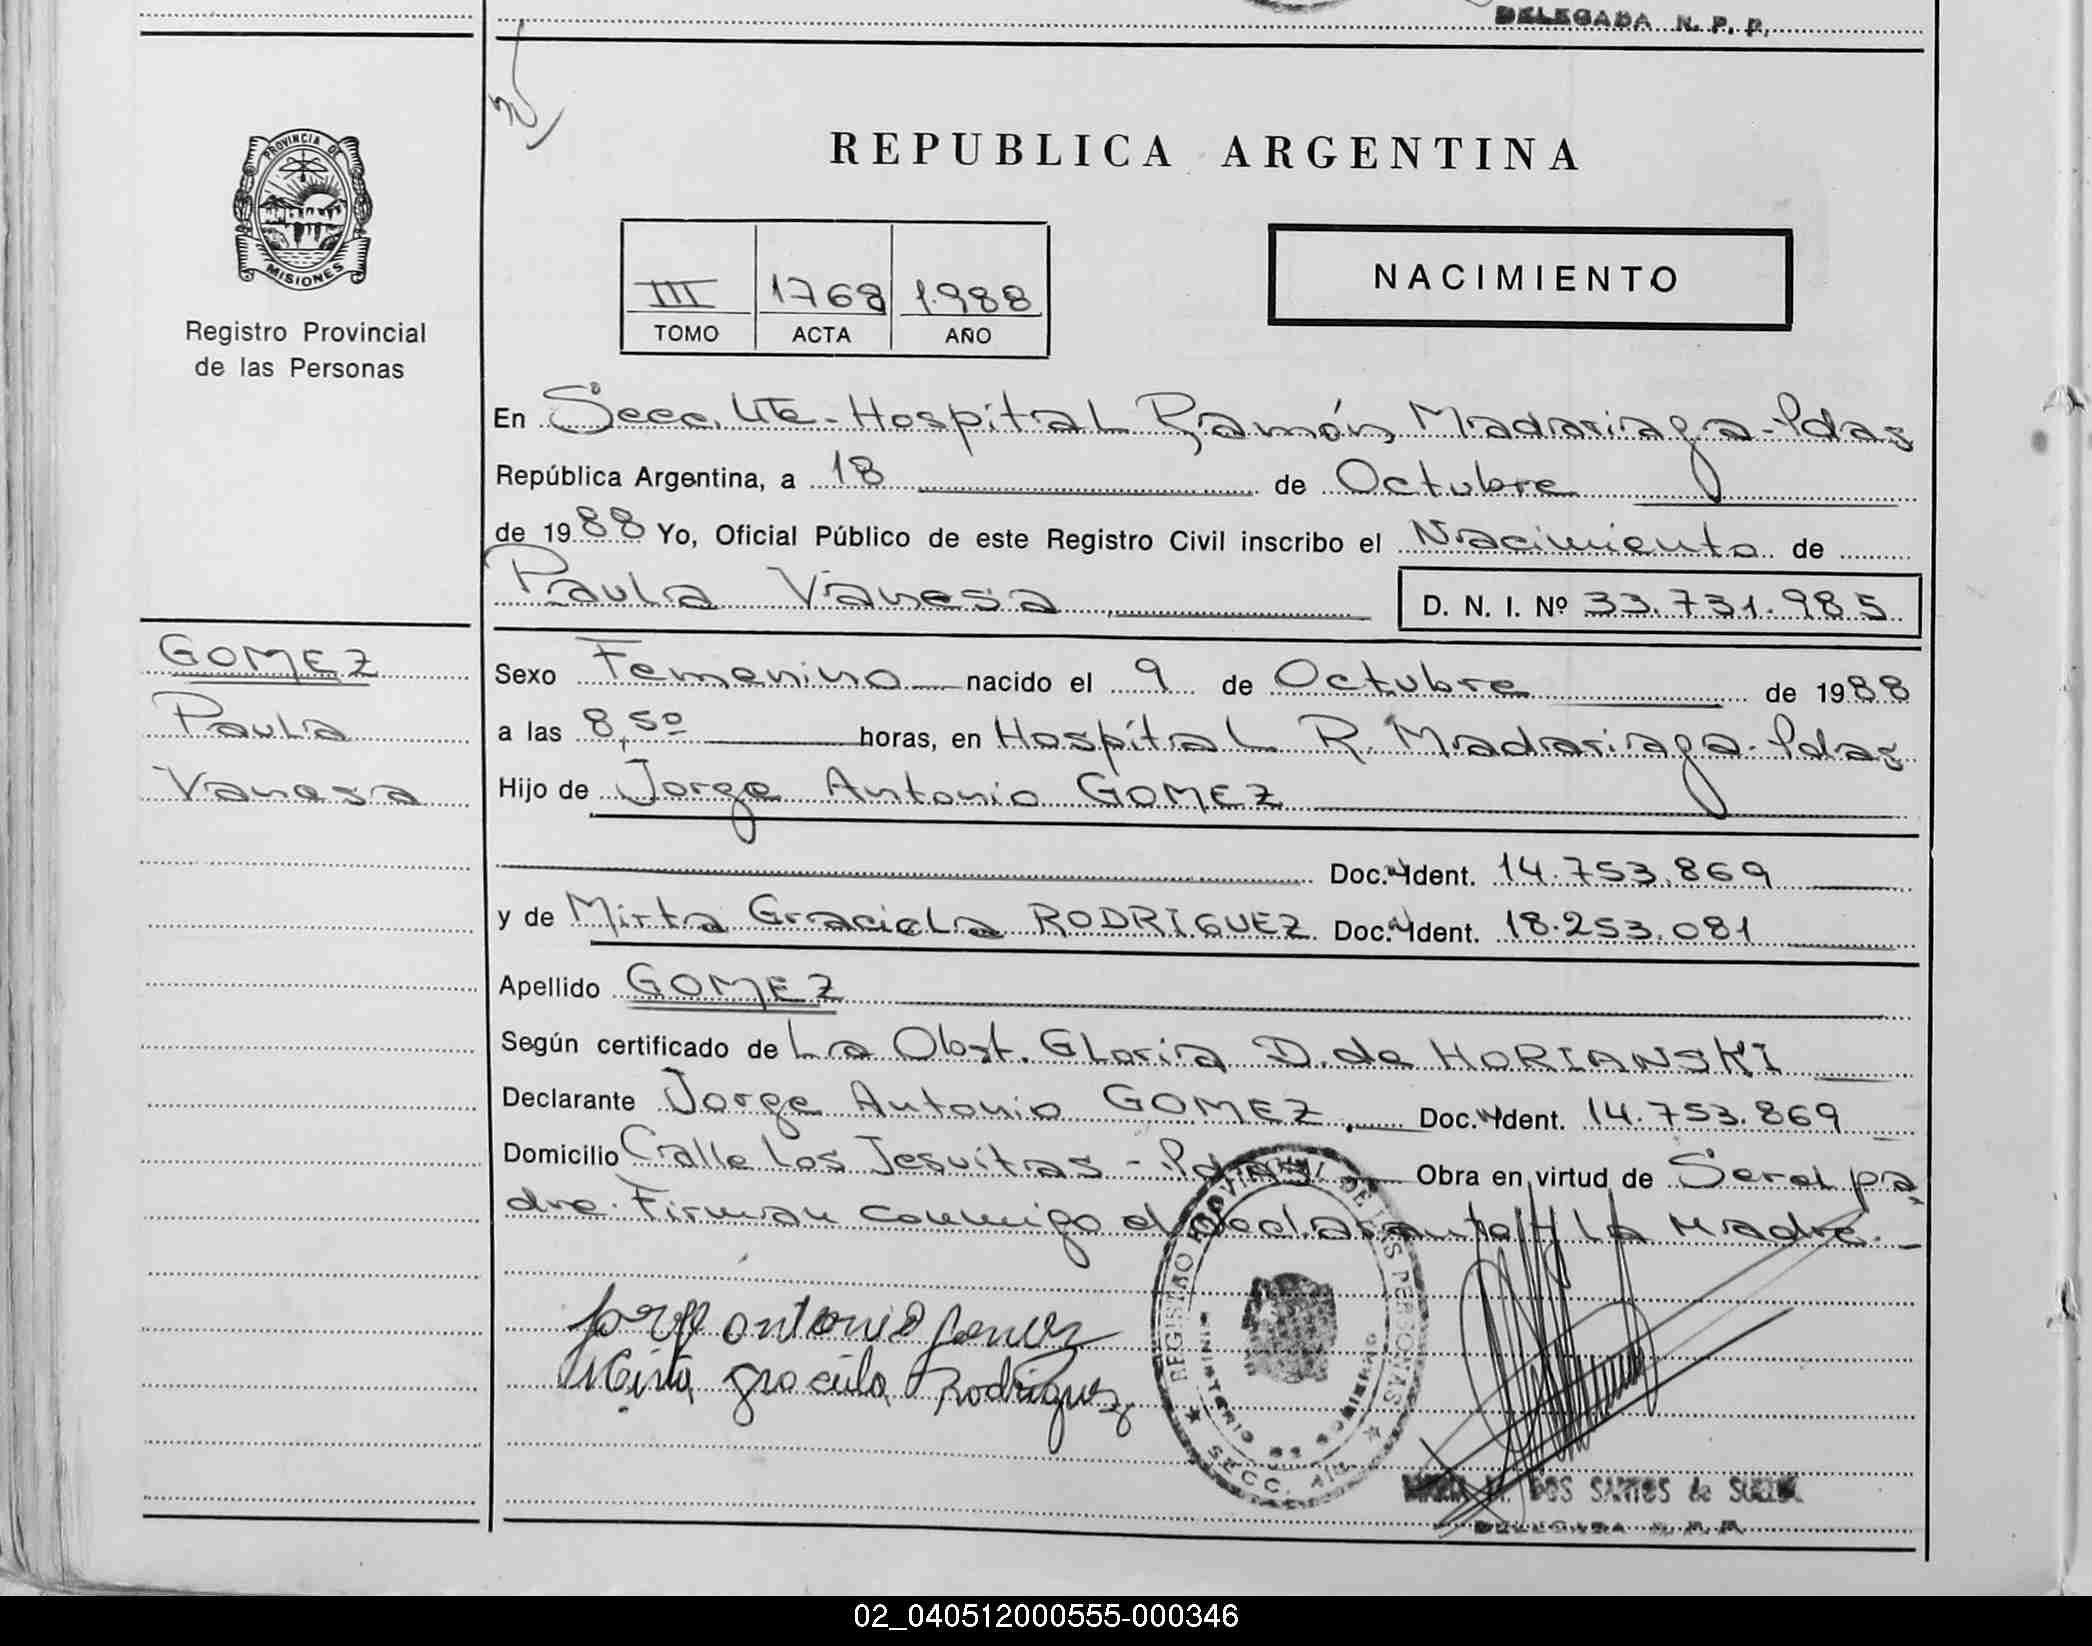 DELEGADA N. P. P.
PROVINCIA DE
MISIONES
Registro Provincial
de las Personas
REPUBLICA ARGENTINA
III 1768 1.988
TOMO ACTA AÑO
NACIMIENTO
En Secc. Hospital Ramón Madariaga-Pdas
República Argentina, a 18 de Octubre
de 1988 Yo, Oficial Público de este Registro Civil inscribo el Nacimiento de
Paula Vanesa D. N. I. Nº 33.731.985
GOMEZ
Paula
Vanesa
Sexo Femenino nacido el 9 de Octubre de 1988
a las 8,50 horas, en Hospital R. Madariaga-Pdas
Hijo de Jorge Antonio GOMEZ
Doc. Ident. 14.753.869
y de Mirta Graciela RODRIGUEZ Doc. Ident. 18.253.081
Apellido GOMEZ
Según certificado de La Obst. Gloria D. de HORIANSKI
Declarante Jorge Antonio GOMEZ Doc. Ident. 14.753.869
Domicilio Calle Los Jesuitas - Pdas Obra en virtud de Ser el pa
dre. Firman conmigo el declarante y La Madre.-
Jorge antonio Gomez
Mirta graciela Rodriguez
REGISTRO PROVINCIAL DE LAS PERSONAS
MINISTERIO DE GOBIERNO
SECC.
DOS SANTOS de
DELEGADA N. P. P.
02_040512000555-000346